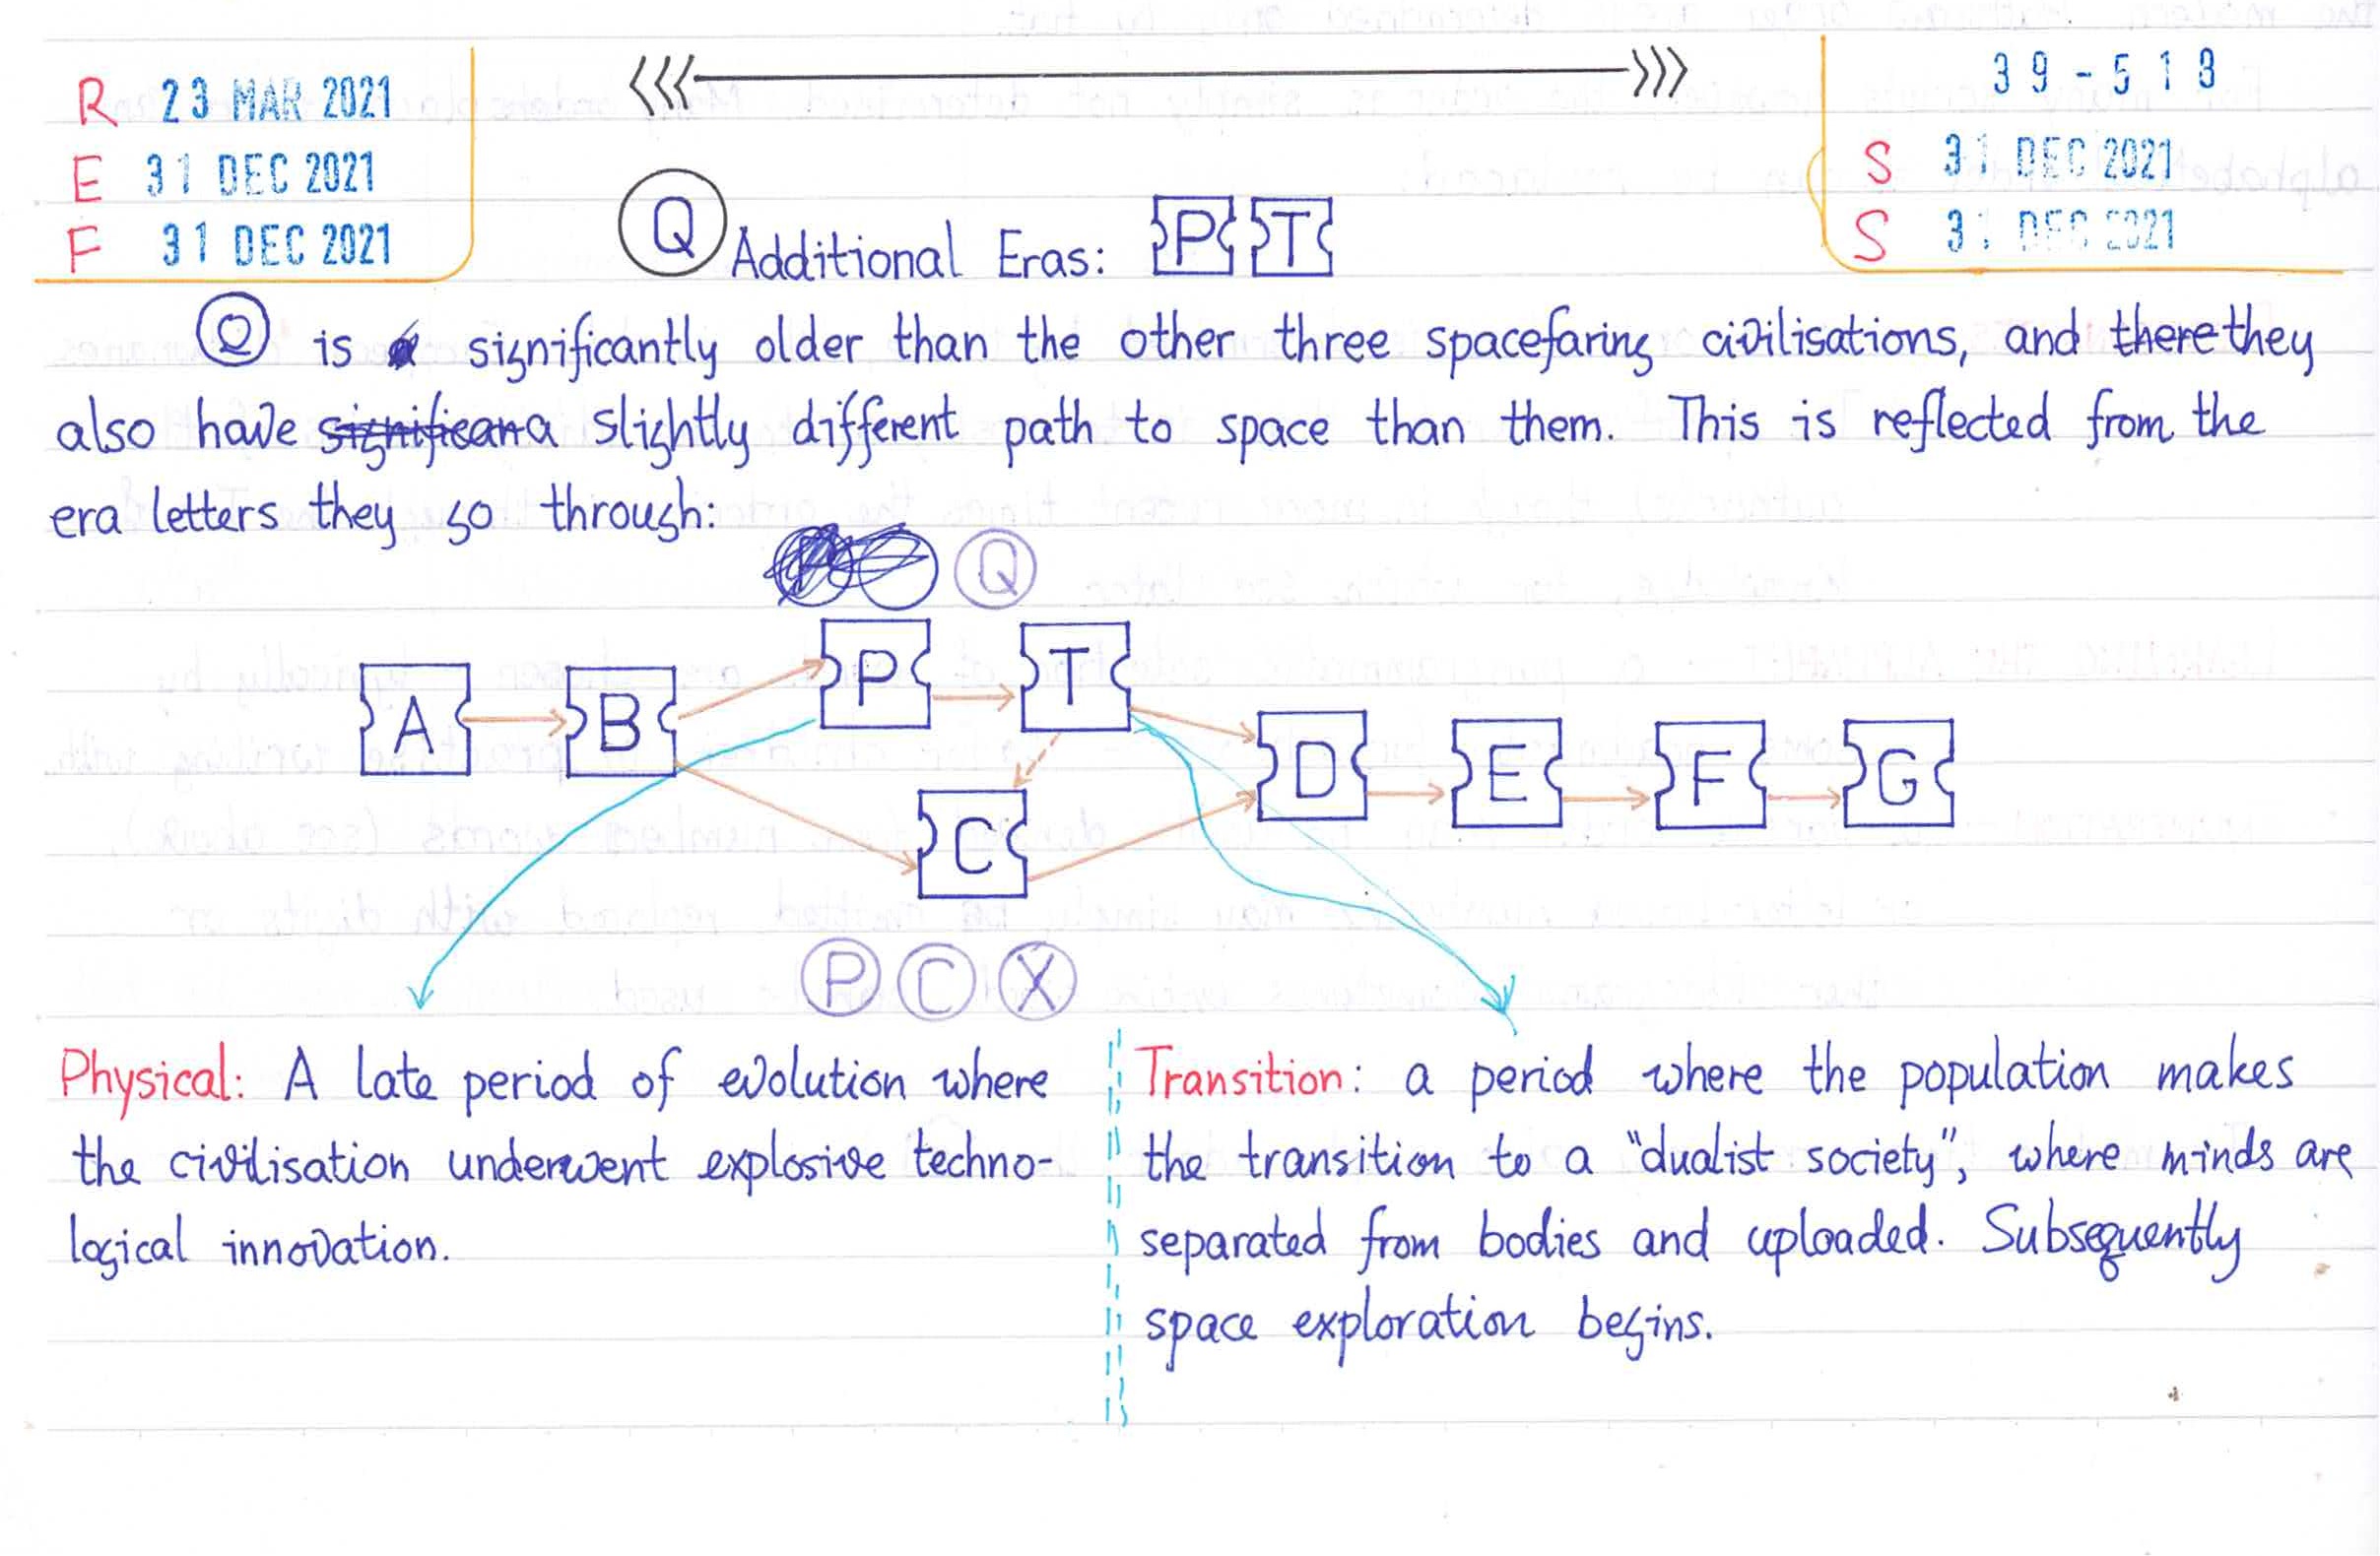 R 23 MAR 2021
E 31 DEC 2021
F 31 DEC 2021
39-513
S 31 DEC 2021
S 31 DEC 2021
Q Additional Eras: P T
Q is significantly older than the other three spacefaring civilisations, and there they
also have significan a slightly different path to space than them. This is reflected from the
era letters they go through:
Q
A B P T D E F G
C
P C X
Physical: A late period of evolution where
the civilisation underwent explosive techno-
logical innovation.
Transition: a period where the population makes
the transition to a "dualist society", where minds are
separated from bodies and uploaded. Subsequently
space exploration begins.